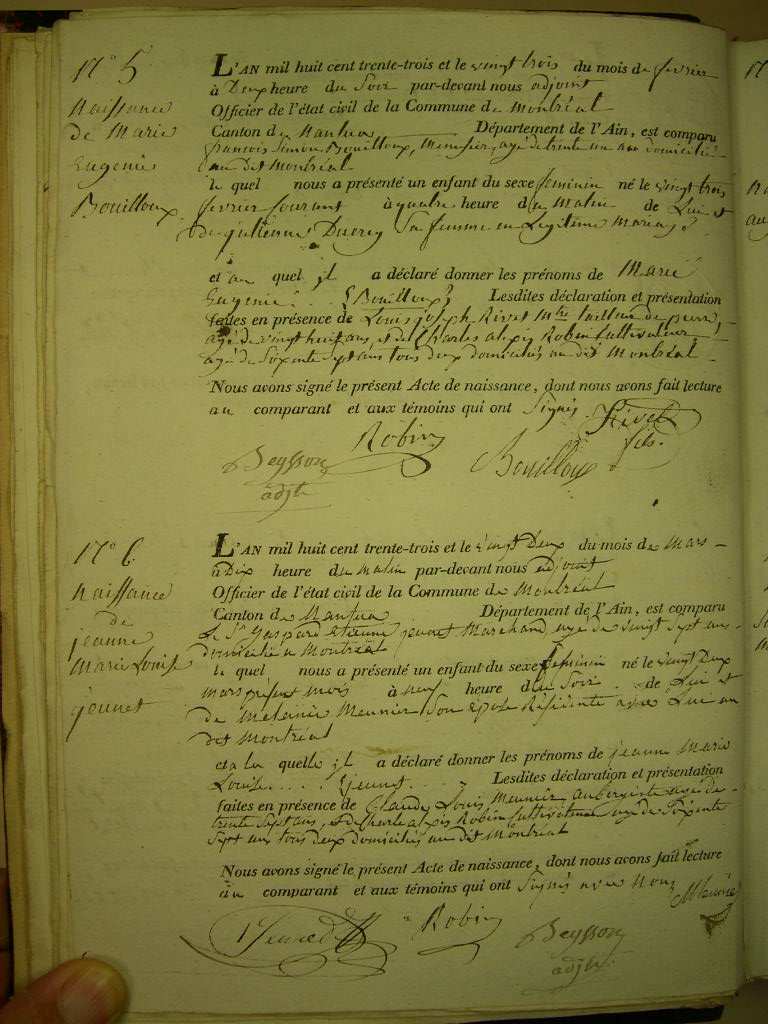 N° 5
Naissance
de Marie
Eugenie
Bouilloux
L'AN mil huit cent trente-trois et le vingt trois du mois de fevrier
à Deux heure du Soir par-devant nous adjoint
Officier de l'état civil de la Commune de Montréal
Canton de Nantua Département de l'Ain, est comparu
francois Simon Bouilloux, Menusier, agé de trente un ans domicilié
au dit Montréal
le quel nous a présenté un enfant du sexe feminin né le vingt trois
fevrier Courant à quatre heure du Matin de Lui et
de julienne Ducrey Sa femme en Legitime Mariage
et au quel il a déclaré donner les prénoms de Marie
Eugenie (Bouilloux) Lesdites déclaration et présentation
faites en présence de Louis joseph Rivet Mtre tailleur de pierre,
agé de vingt huit ans, et de Charles alexis Robin Cultivateur
agé de Soixente Sept ans tous deux domiciliés au dit Montréal
Nous avons signé le présent Acte de naissance, dont nous avons fait lecture
au comparant et aux témoins qui ont Signés
Rivet
fils
Robin
Beysson
adjt
Bouilloux
N° 6
Naissance
de
jeanne
Marie Louise
jeunet
L'AN mil huit cent trente-trois et le vingt Deux du mois de Mars
à Dix heure du Matin par-devant nous adjoint
Officier de l'état civil de la Commune de Montréal
Canton de Nantua Département de l'Ain, est comparu
Le Sr Gaspard etienne jeunet Marchand, agé de vingt Sept ans
domicilié a Montréal
le quel nous a présenté un enfant du sexe feminin né le vingt Deux
Mars présent mois à neuf heure du Soir de Lui et
de Melanie Meunier Son épose Residente avec Lui au
dit Montréal
et a la quelle il a déclaré donner les prénoms de jeanne Marie
Louise (jeunet) Lesdites déclaration et présentation
faites en présence de Claude Louis Meunier aubergiste agé de
trente Sept ans, et de Charle alexis Robin Cultivateur agé de Soixente
Sept ans tous deux domiciliés au dit Montréal
Nous avons signé le présent Acte de naissance, dont nous avons fait lecture
au comparant et aux témoins qui ont Signés avec Nous
Meunier
Robin
Beysson
adjt